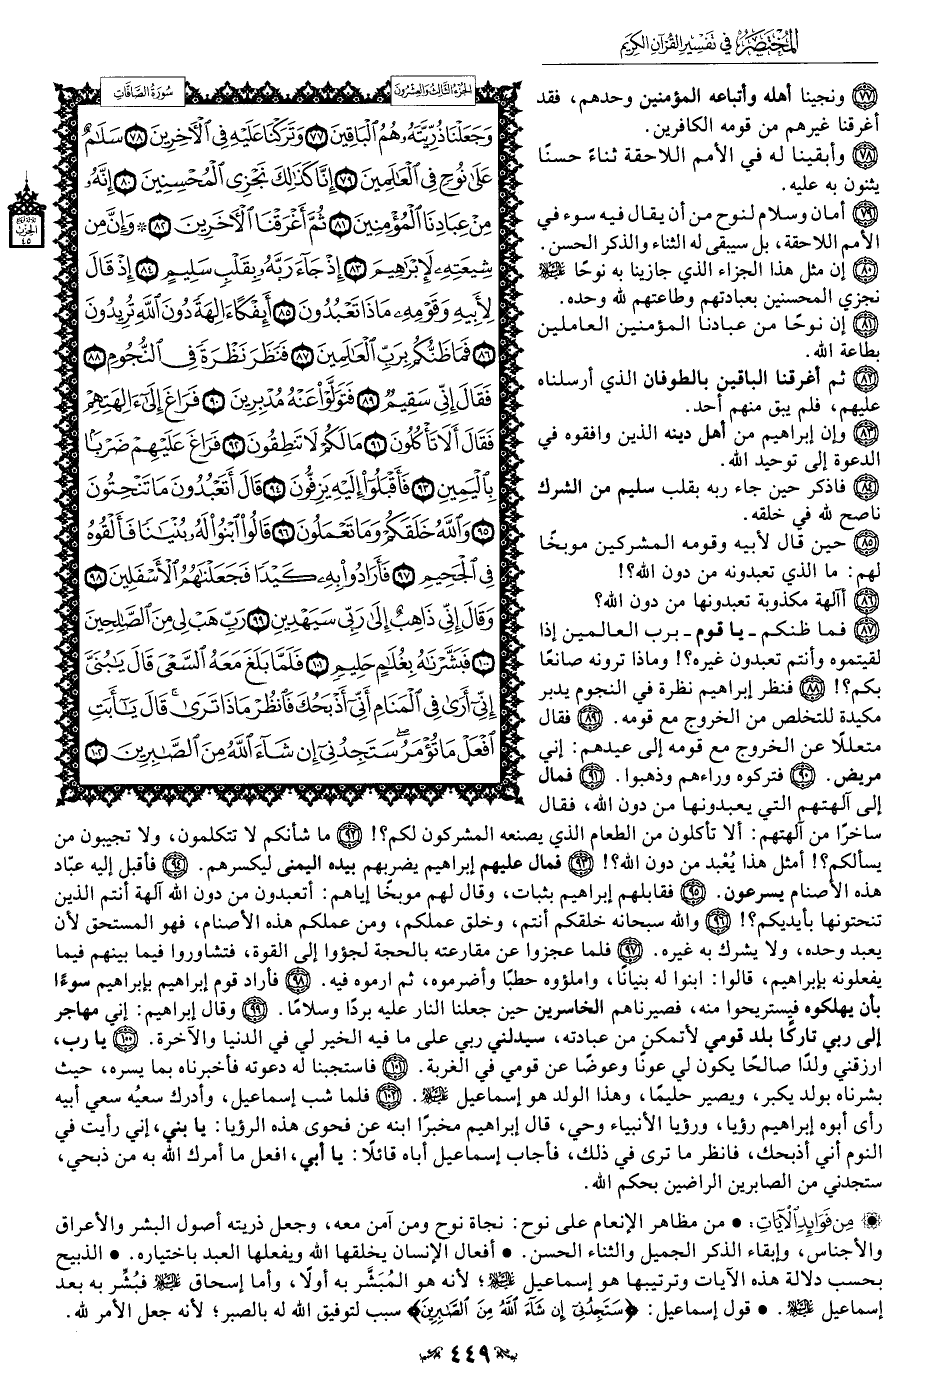 المختصر في تفسير القرآن الكريم
الجزء الثالث والعشرون
سورة الصافات
وَجَعَلْنَا ذُرِّيَّتَهُۥ هُمُ ٱلْبَاقِينَ ٧٧ وَتَرَكْنَا عَلَيْهِ فِي ٱلْأٓخِرِينَ ٧٨ سَلَٰمٌ
عَلَىٰ نُوحٍ فِي ٱلْعَٰلَمِينَ ٧٩ إِنَّا كَذَٰلِكَ نَجْزِي ٱلْمُحْسِنِينَ ٨٠ إِنَّهُۥ
مِنْ عِبَادِنَا ٱلْمُؤْمِنِينَ ٨١ ثُمَّ أَغْرَقْنَا ٱلْأٓخَرِينَ ٨٢ ۞ وَإِنَّ مِن
شِيعَتِهِۦ لَإِبْرَٰهِيمَ ٨٣ إِذْ جَآءَ رَبَّهُۥ بِقَلْبٍ سَلِيمٍ ٨٤ إِذْ قَالَ
لِأَبِيهِ وَقَوْمِهِۦ مَاذَا تَعْبُدُونَ ٨٥ أَئِفْكًا ءَالِهَةً دُونَ ٱللَّهِ تُرِيدُونَ
٨٦ فَمَا ظَنُّكُم بِرَبِّ ٱلْعَٰلَمِينَ ٨٧ فَنَظَرَ نَظْرَةً فِي ٱلنُّجُومِ ٨٨
فَقَالَ إِنِّي سَقِيمٌ ٨٩ فَتَوَلَّوْا۟ عَنْهُ مُدْبِرِينَ ٩٠ فَرَاغَ إِلَىٰٓ ءَالِهَتِهِمْ
فَقَالَ أَلَا تَأْكُلُونَ ٩١ مَا لَكُمْ لَا تَنطِقُونَ ٩٢ فَرَاغَ عَلَيْهِمْ ضَرْبًۢا
بِٱلْيَمِينِ ٩٣ فَأَقْبَلُوٓا۟ إِلَيْهِ يَزِفُّونَ ٩٤ قَالَ أَتَعْبُدُونَ مَا تَنْحِتُونَ
٩٥ وَٱللَّهُ خَلَقَكُمْ وَمَا تَعْمَلُونَ ٩٦ قَالُوا۟ ٱبْنُوا۟ لَهُۥ بُنْيَٰنًا فَأَلْقُوهُ
فِي ٱلْجَحِيمِ ٩٧ فَأَرَادُوا۟ بِهِۦ كَيْدًا فَجَعَلْنَٰهُمُ ٱلْأَسْفَلِينَ ٩٨
وَقَالَ إِنِّي ذَاهِبٌ إِلَىٰ رَبِّي سَيَهْدِينِ ٩٩ رَبِّ هَبْ لِي مِنَ ٱلصَّٰلِحِينَ
١٠٠ فَبَشَّرْنَٰهُ بِغُلَٰمٍ حَلِيمٍ ١٠١ فَلَمَّا بَلَغَ مَعَهُ ٱلسَّعْيَ قَالَ يَٰبُنَيَّ
إِنِّيٓ أَرَىٰ فِي ٱلْمَنَامِ أَنِّيٓ أَذْبَحُكَ فَٱنظُرْ مَاذَا تَرَىٰ ۚ قَالَ يَٰٓأَبَتِ
ٱفْعَلْ مَا تُؤْمَرُ ۖ سَتَجِدُنِيٓ إِن شَآءَ ٱللَّهُ مِنَ ٱلصَّٰبِرِينَ ١٠٢
الحزب
٤٥
٧٧ ونجينا أهله وأتباعه المؤمنين وحدهم، فقد
أغرقنا غيرهم من قومه الكافرين.
٧٨ وأبقينا له في الأمم اللاحقة ثناءً حسنًا
يثنون به عليه.
٧٩ أمان وسلام لنوح من أن يقال فيه سوء في
الأمم اللاحقة، بل سيبقى له الثناء والذكر الحسن.
٨٠ إن مثل هذا الجزاء الذي جازينا به نوحًا ﵇
نجزي المحسنين بعبادتهم وطاعتهم لله وحده.
٨١ إن نوحًا من عبادنا المؤمنين العاملين
بطاعة الله.
٨٢ ثم أغرقنا الباقين بالطوفان الذي أرسلناه
عليهم، فلم يبق منهم أحد.
٨٣ وإن إبراهيم من أهل دينه الذين وافقوه في
الدعوة إلى توحيد الله.
٨٤ فاذكر حين جاء ربه بقلب سليم من الشرك
ناصح لله في خلقه.
٨٥ حين قال لأبيه وقومه المشركين موبخًا
لهم: ما الذي تعبدونه من دون الله؟!
٨٦ أآلهة مكذوبة تعبدونها من دون الله؟
٨٧ فما ظنكم - يا قوم - برب العالمين إذا
لقيتموه وأنتم تعبدون غيره؟! وماذا ترونه صانعًا
بكم؟! ٨٨ فنظر إبراهيم نظرة في النجوم يدبر
مكيدة للتخلص من الخروج مع قومه. ٨٩ فقال
متعللًا عن الخروج مع قومه إلى عيدهم: إني
مريض. ٩٠ فتركوه وراءهم وذهبوا. ٩١ فمال
إلى آلهتهم التي يعبدونها من دون الله، فقال
ساخرًا من آلهتهم: ألا تأكلون من الطعام الذي يصنعه المشركون لكم؟! ٩٢ ما شأنكم لا تتكلمون، ولا تجيبون من
يسألكم؟! أمثل هذا يُعْبد من دون الله؟! ٩٣ فمال عليهم إبراهيم يضربهم بيده اليمنى ليكسرهم. ٩٤ فأقبل إليه عبّاد
هذه الأصنام يسرعون. ٩٥ فقابلهم إبراهيم بثبات، وقال لهم موبخًا إياهم: أتعبدون من دون الله آلهة أنتم الذين
تنحتونها بأيديكم؟! ٩٦ والله سبحانه خلقكم أنتم، وخلق عملكم، ومن عملكم هذه الأصنام، فهو المستحق لأن
يعبد وحده، ولا يشرك به غيره. ٩٧ فلما عجزوا عن مقارعته بالحجة لجؤوا إلى القوة، فتشاوروا فيما بينهم فيما
يفعلونه بإبراهيم، قالوا: ابنوا له بنيانًا، واملؤوه حطبًا وأضرموه، ثم ارموه فيه. ٩٨ فأراد قوم إبراهيم بإبراهيم سوءًا
بأن يهلكوه فيستريحوا منه، فصيرناهم الخاسرين حين جعلنا النار عليه بردًا وسلامًا. ٩٩ وقال إبراهيم: إني مهاجر
إلى ربي تاركًا بلد قومي لأتمكن من عبادته، سيدلني ربي على ما فيه الخير لي في الدنيا والآخرة. ١٠٠ يا رب،
ارزقني ولدًا صالحًا يكون لي عونًا وعوضًا عن قومي في الغربة. ١٠١ فاستجبنا له دعوته فأخبرناه بما يسره، حيث
بشرناه بولد يكبر، ويصير حليمًا، وهذا الولد هو إسماعيل ﵇. ١٠٢ فلما شب إسماعيل، وأدرك سعيُه سعي أبيه
رأى أبوه إبراهيم رؤيا، ورؤيا الأنبياء وحي، قال إبراهيم مخبرًا ابنه عن فحوى هذه الرؤيا: يا بني، إني رأيت في
النوم أني أذبحك، فانظر ما ترى في ذلك، فأجاب إسماعيل أباه قائلًا: يا أبي، افعل ما أمرك الله به من ذبحي،
ستجدني من الصابرين الراضين بحكم الله.
من فوائد الآيات: • من مظاهر الإنعام على نوح: نجاة نوح ومن آمن معه، وجعل ذريته أصول البشر والأعراق
والأجناس، وإبقاء الذكر الجميل والثناء الحسن. • أفعال الإنسان يخلقها الله ويفعلها العبد باختياره. • الذبيح
بحسب دلالة هذه الآيات وترتيبها هو إسماعيل ﵇؛ لأنه هو المُبَشَّر به أولًا، وأما إسحاق ﵇ فبُشِّر به بعد
إسماعيل ﵇. • قول إسماعيل: ﴿سَتَجِدُنِيٓ إِن شَآءَ ٱللَّهُ مِنَ ٱلصَّٰبِرِينَ﴾ سبب لتوفيق الله له بالصبر؛ لأنه جعل الأمر لله.
٤٤٩